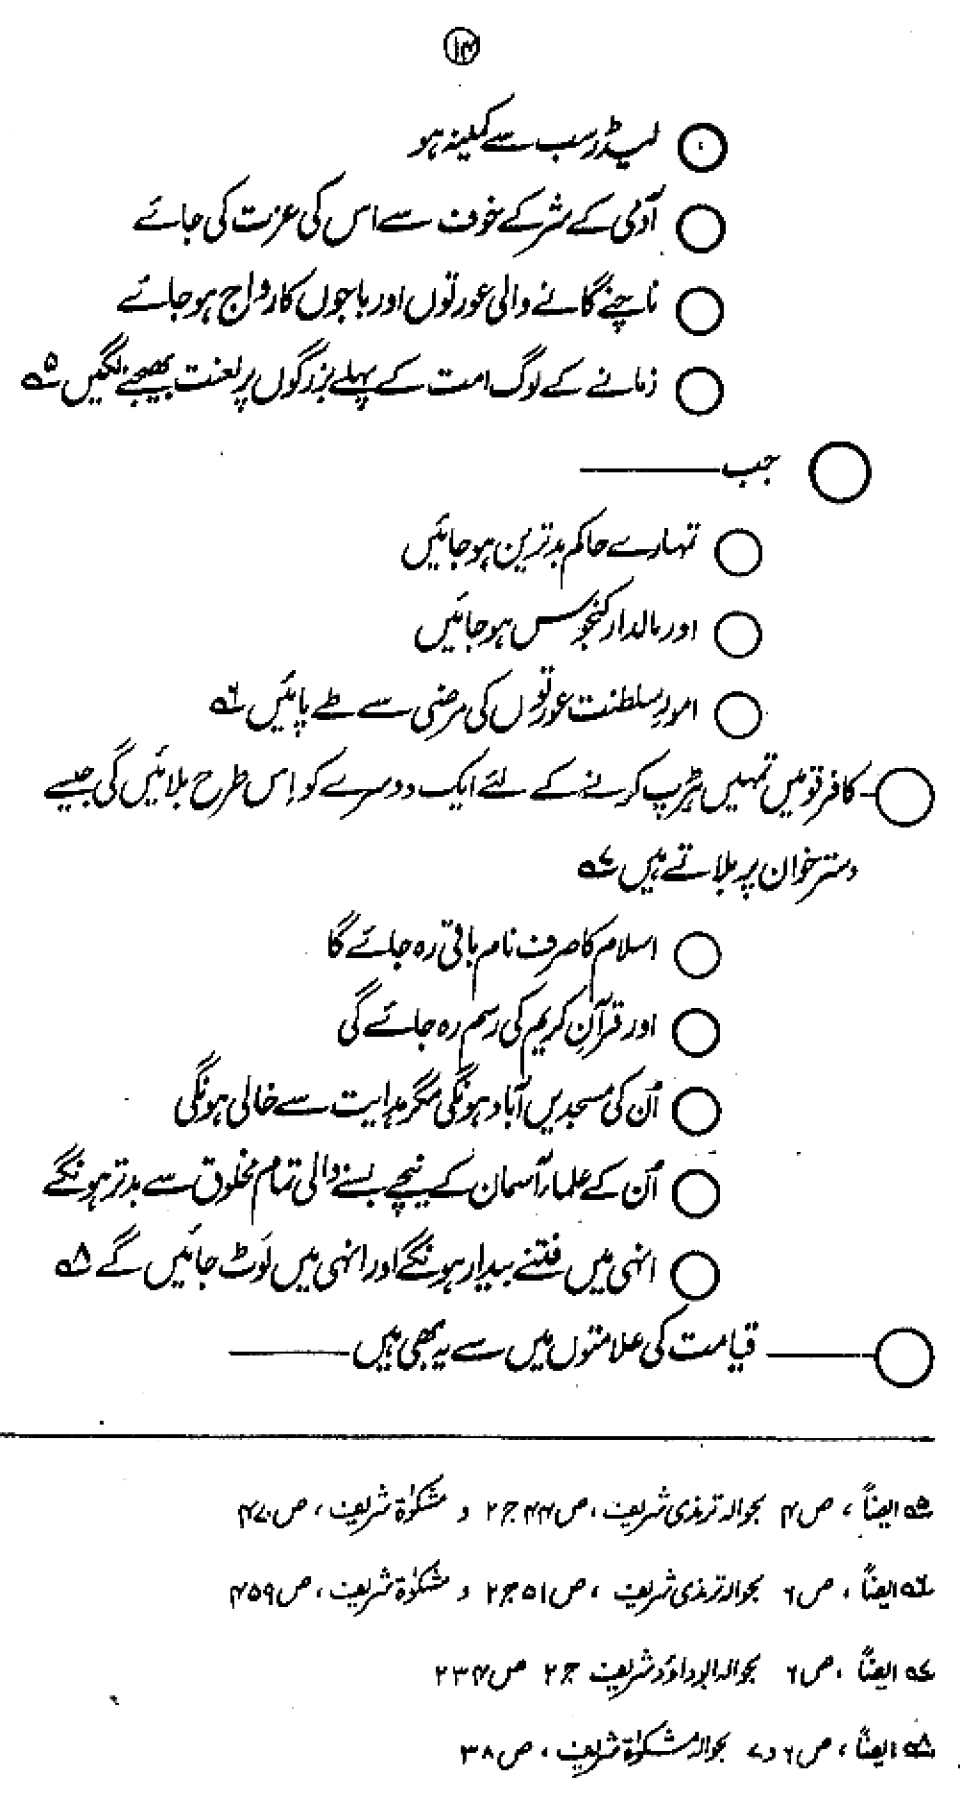 ۱۴
لیڈر سب سے کمینہ ہو
آدمی کے شر کے خوف سے اس کی عزت کی جائے
ناچنے گانے والی عورتوں اور باجوں کا رواج ہو جائے
زمانے کے لوگ امت کے پہلے بزرگوں پر لعنت بھیجنے لگیں ۵ھ
جب ———
تمہارے حاکم بدترین ہو جائیں
اور مالدار کنجوس ہو جائیں
امورِ سلطنت عورتوں کی مرضی سے طے پائیں ۶ھ
کافر قومیں تمہیں ہڑپ کرنے کے لئے ایک دوسرے کو اِس طرح بلائیں گی جیسے
دسترخوان پر بلاتے ہیں ۷ھ
اسلام کا صرف نام باقی رہ جائے گا
اور قرآنِ کریم کی رسم رہ جائے گی
اُن کی مسجدیں آباد ہونگی مگر ہدایت سے خالی ہونگی
اُن کے علماء آسمان کے نیچے بسنے والی تمام مخلوق سے بدتر ہونگے
انہی میں فتنے بیدار ہونگے اور انہی میں لَوٹ جائیں گے ۸ھ
——— قیامت کی علامتوں میں سے یہ بھی ہیں ———
۵ھ ایضاً ، ص ۴ بحوالہ ترمذی شریف ، ص ۴۴ ج ۲ و مشکوٰۃ شریف ، ص ۴۷۰
۶ھ ایضاً ، ص ۶ بحوالہ ترمذی شریف ، ص ۵۱ ج ۲ و مشکوٰۃ شریف ، ص ۴۵۹
۷ھ ایضاً ، ص ۶ بحوالہ ابوداؤد شریف ج ۲ ص ۲۳۴
۸ھ ایضاً ، ص ۶ و ۷ بحوالہ مشکوٰۃ شریف ، ص ۳۸